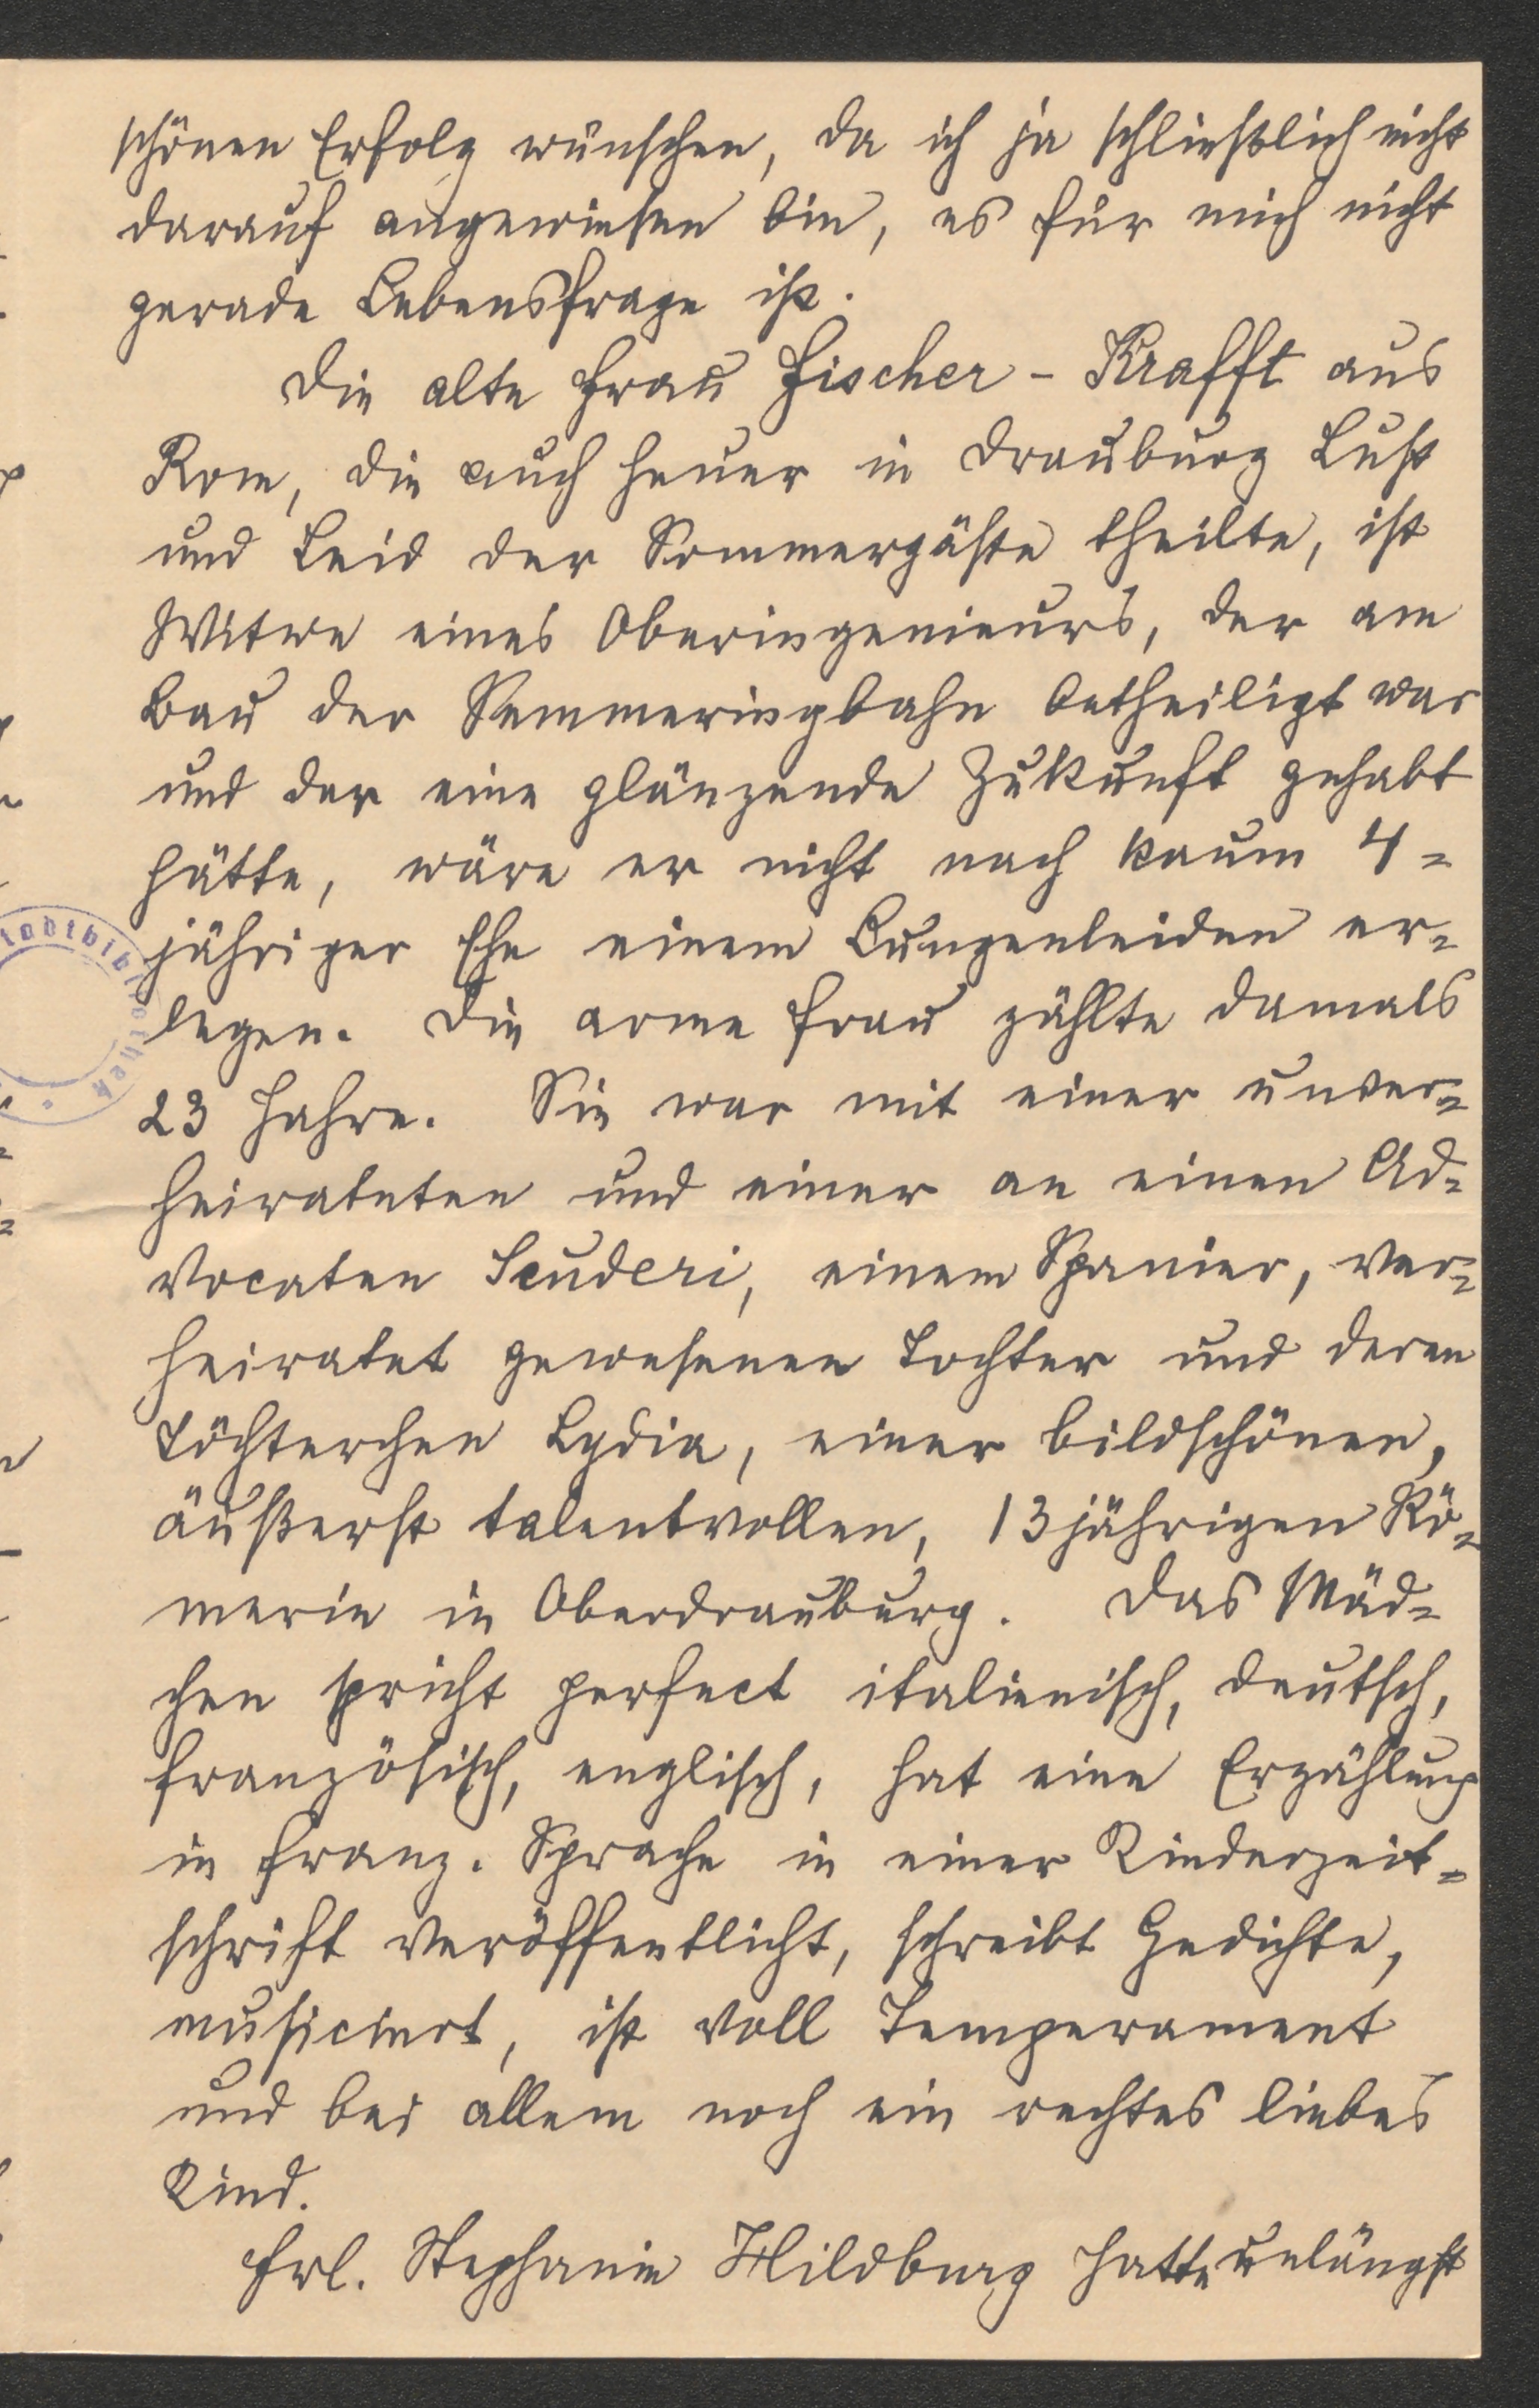 schönen Erfolg wünschen, da ich ja schließlich nicht
darauf angewiesen bin, es für mich nicht
gerade Lebensfrage ist.
Die alte Frau Fischer-Krafft aus
Rom, die auch heuer in Drauburg Lust
und Leid der Sommergäste theilte, ist
Witwe eines Oberingenieurs, der am
Bau der Semmeringbahn betheiligt war
und der eine glänzende Zukunft gehabt
hätte, wäre er nicht nach kaum 4=
jähriger Ehe einem Lungenleiden er=
legen. Die arme Frau zählte damals
23 Jahre. Sie war mit einer unver=
heirateten und einer an einen Ad=
vocaten Scuderi, einem Spanier, ver=
heiratet gewesenen Tochter und deren
Töchterchen Lydia, einer bildschönen,
äußerst talentvollen, 13jährigen Rö=
merin in Oberdrauburg. Das Mäd=
chen spricht perfect italienisch, deutsch,
französisch, englisch, hat eine Erzählung
in franz. Sprache in einer Kinderzeit=
schrift veröffentlicht, schreibt Gedichte,
musiciert, ist voll Temperament
und bei allem noch ein rechtes liebes
Kind.
Frl. Stephanie Hildburg hatte unlängst